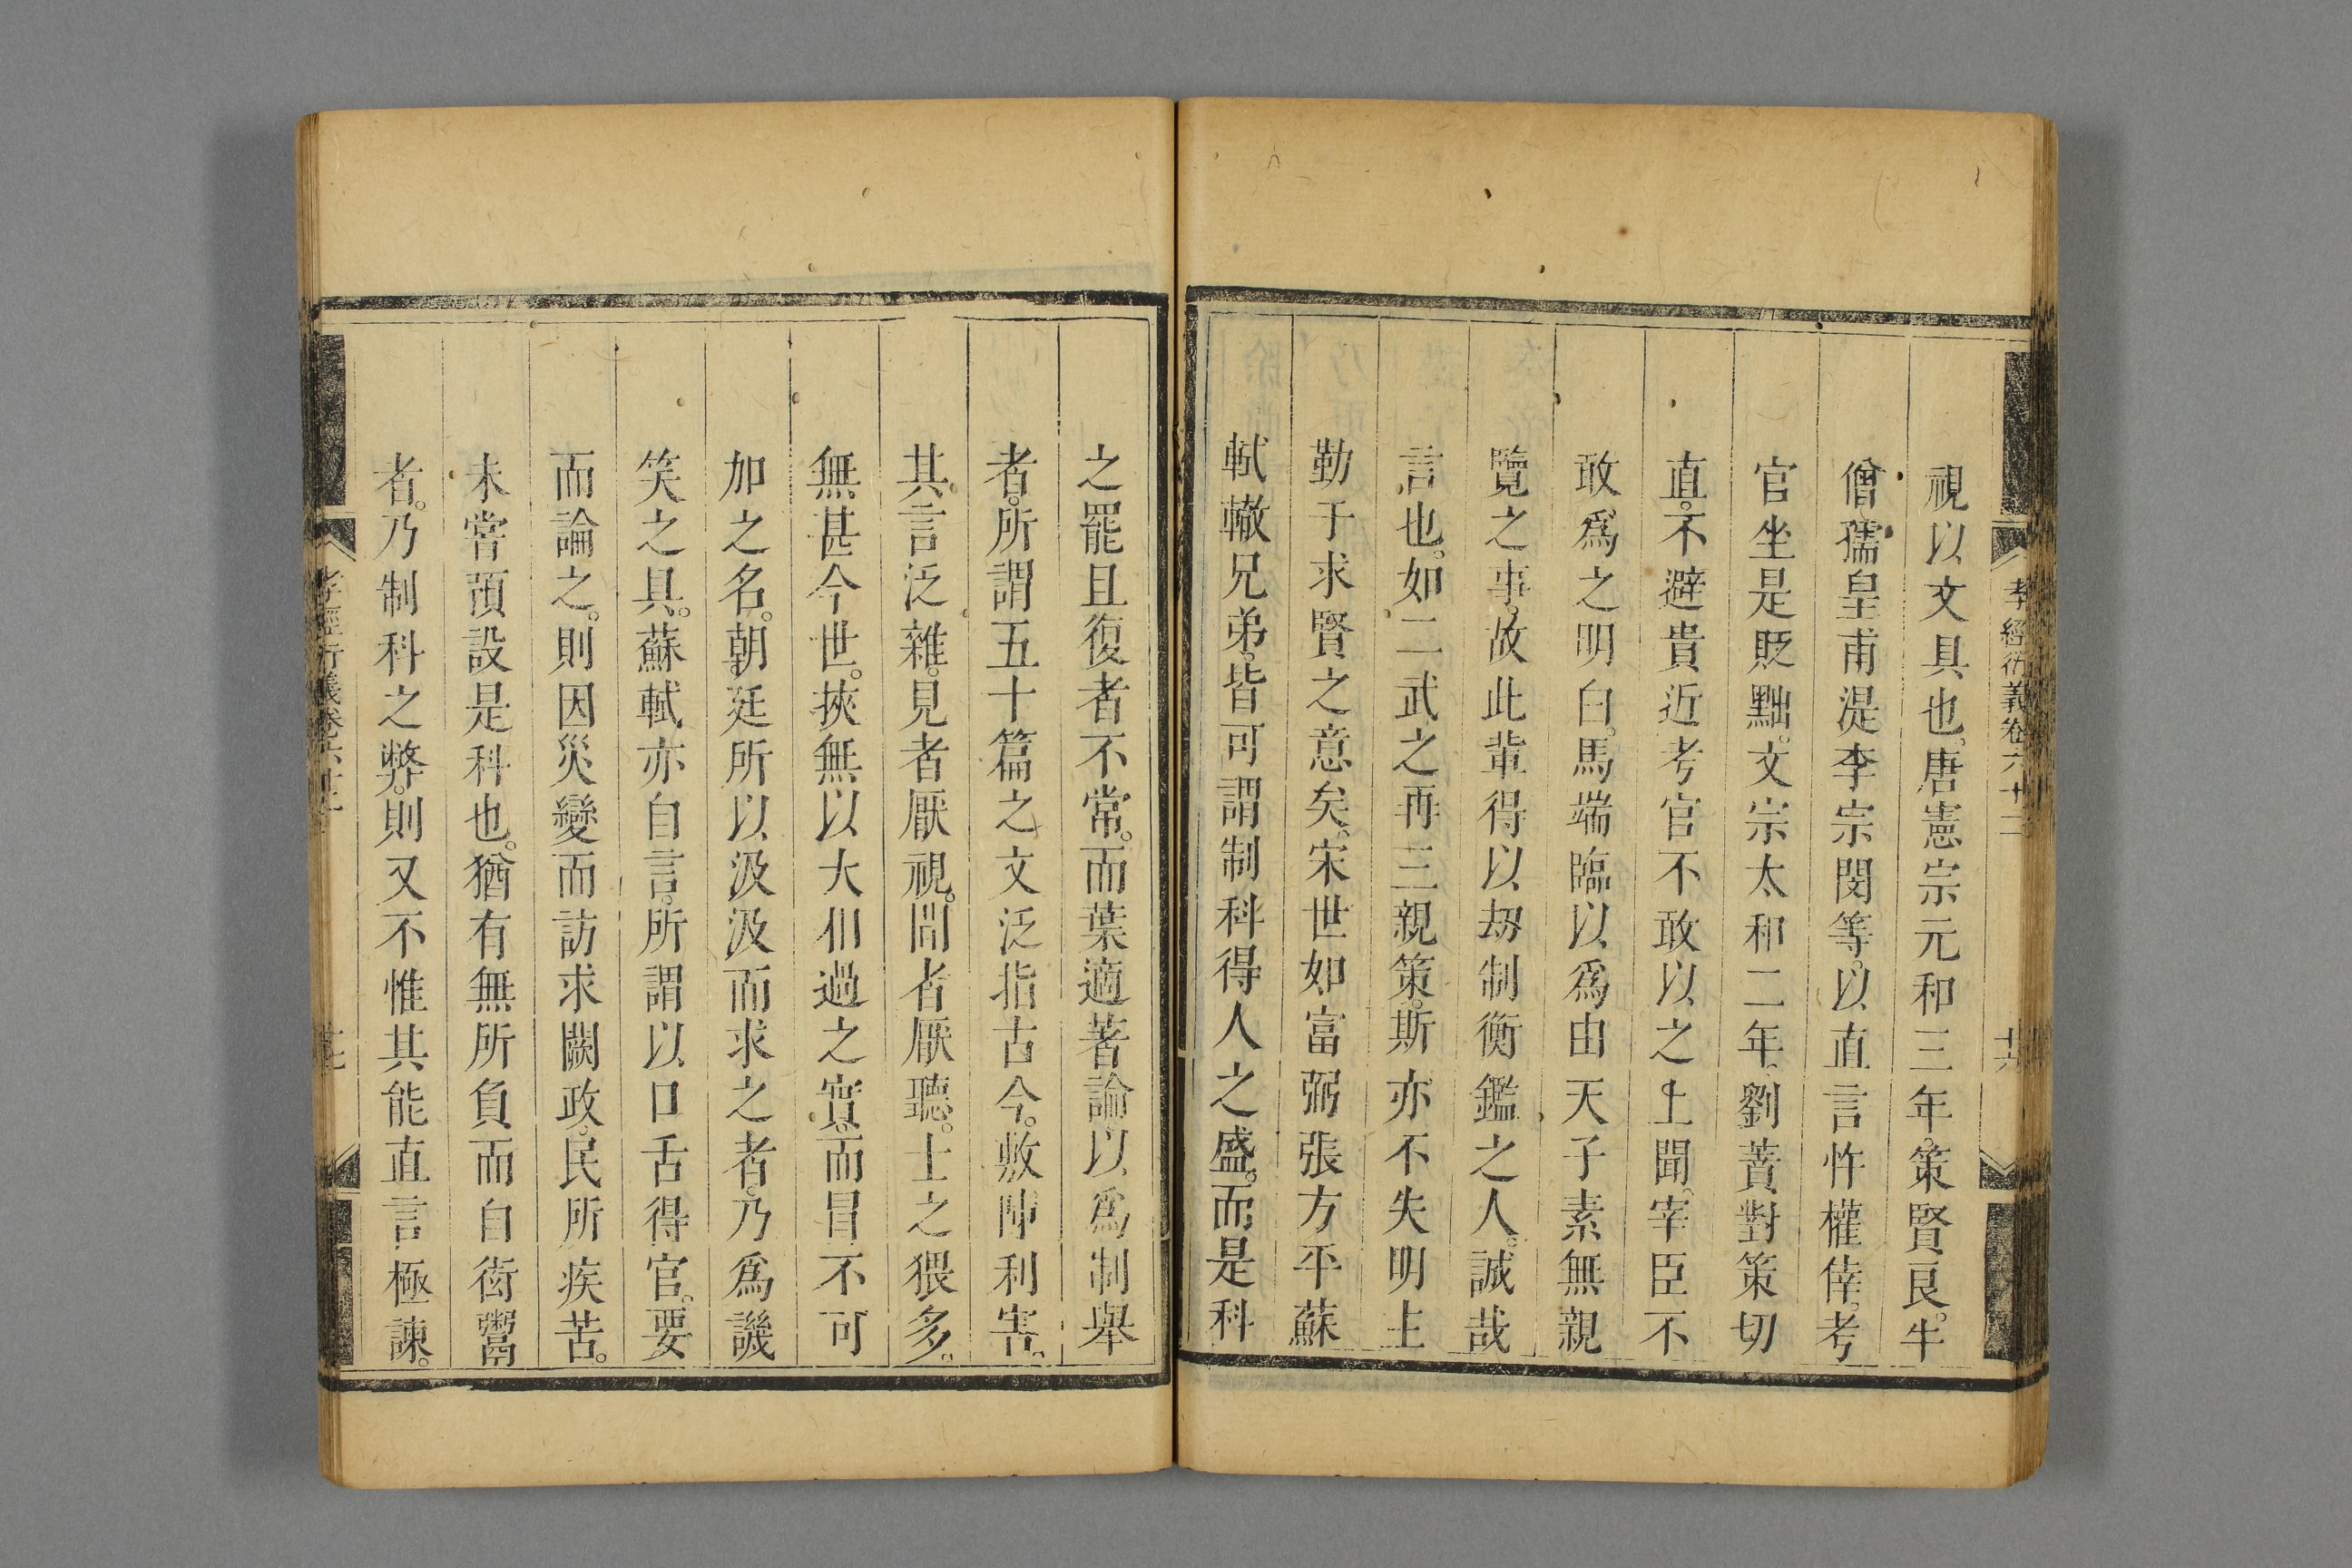 孝經衍義卷六十二
十六
視以文具也。唐憲宗元和三年。策賢良。牛
僧孺皇甫湜李宗閔等。以直言忤權倖。考
官坐是貶黜。文宗太和二年。劉蕡對策切
直。不避貴近考官不敢以之上聞。宰臣不
敢爲之明白。馬端臨以爲由天子素無親
覽之事。故此輩得以刼制衡鑑之人。誠哉
言也。如二武之再三親策。斯亦不失明上
勤于求賢之意矣。宋世如富弼張方平蘇
軾轍兄弟。皆可謂制科得人之盛。而是科
之罷且復者不常。而葉適著論以爲制舉
者。所謂五十篇之文泛指古今。敷陳利害。
其言泛雜。見者厭視。聞者厭聽。士之猥多。
無甚今世。挾無以大相過之實。而冒不可
加之名。朝廷所以汲汲而求之者。乃爲譏
笑之具。蘇軾亦自言。所謂以口舌得官。要
而論之。則因災變而訪求闕政。民所疾苦。
未嘗預設是科也。猶有無所負而自衒鬻
者。乃制科之弊。則又不惟其能直言極諫。
孝經衍義卷六十二